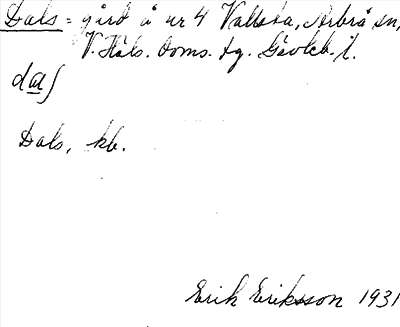 Dals = gård å nr 4 Vallsta, Arbrå sn,
V. Häls. doms. tg. Gävleb. l.
dɑlʃ
Dals, kb.
Erik Eriksson 1931